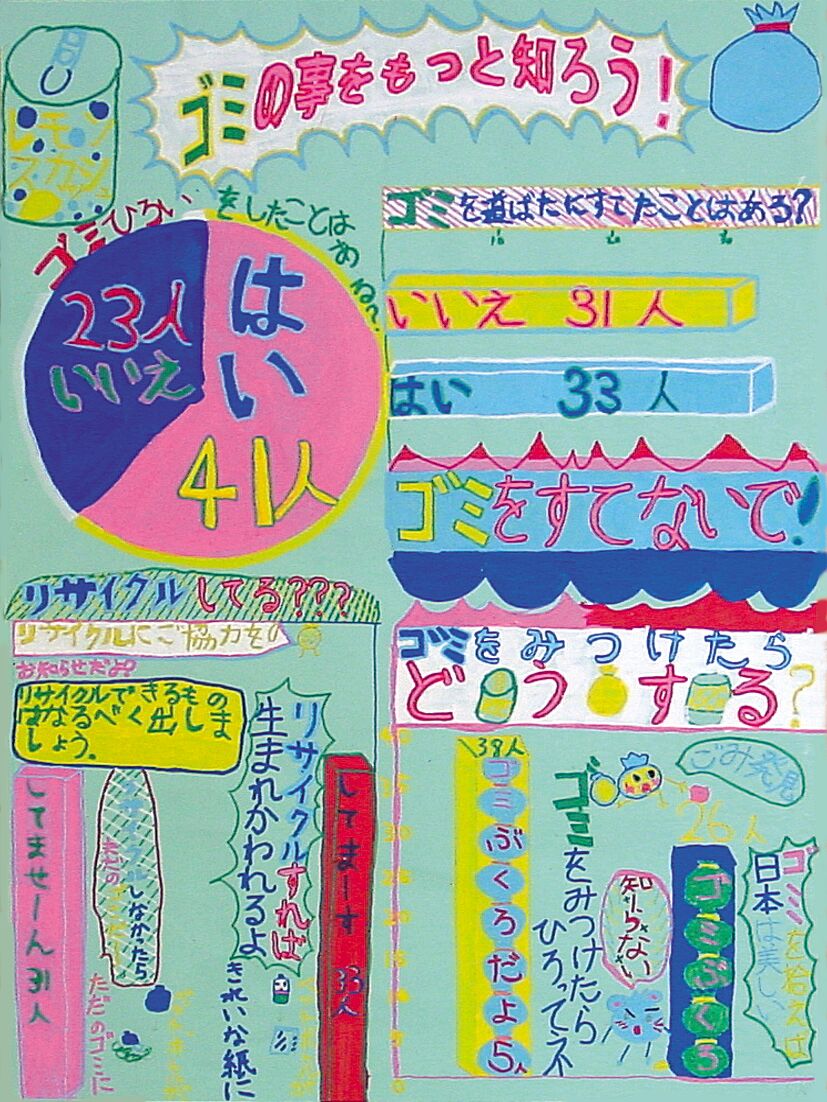 ゴミの事をもっと知ろう!
レモン
スカッシュ
ゴミひろいをしたことはある?
23人
いいえ
はい
41人
ゴミを道ばたにすてたことはある?
10 20 30
いいえ 31人
はい 33人
ゴミをすてないで!
リサイクルしてる???
リサイクルにご協力を
お知らせだよ?
リサイクルできるもの
はなるべく出しま
しょう。
してませーん 31人
リサイクルしなかったら
ただのゴミに
リサイクルすれば
生まれかわれるよ
きれいな紙に
してまーす 33人
ゴミをみつけたら
どうする?
38人
ゴミぶくろだよ5人
ゴミをみつけたら
ひろってネ
ごみ発見
知らない
26人
ゴミぶくろ
ゴミを拾えば
日本は美しい